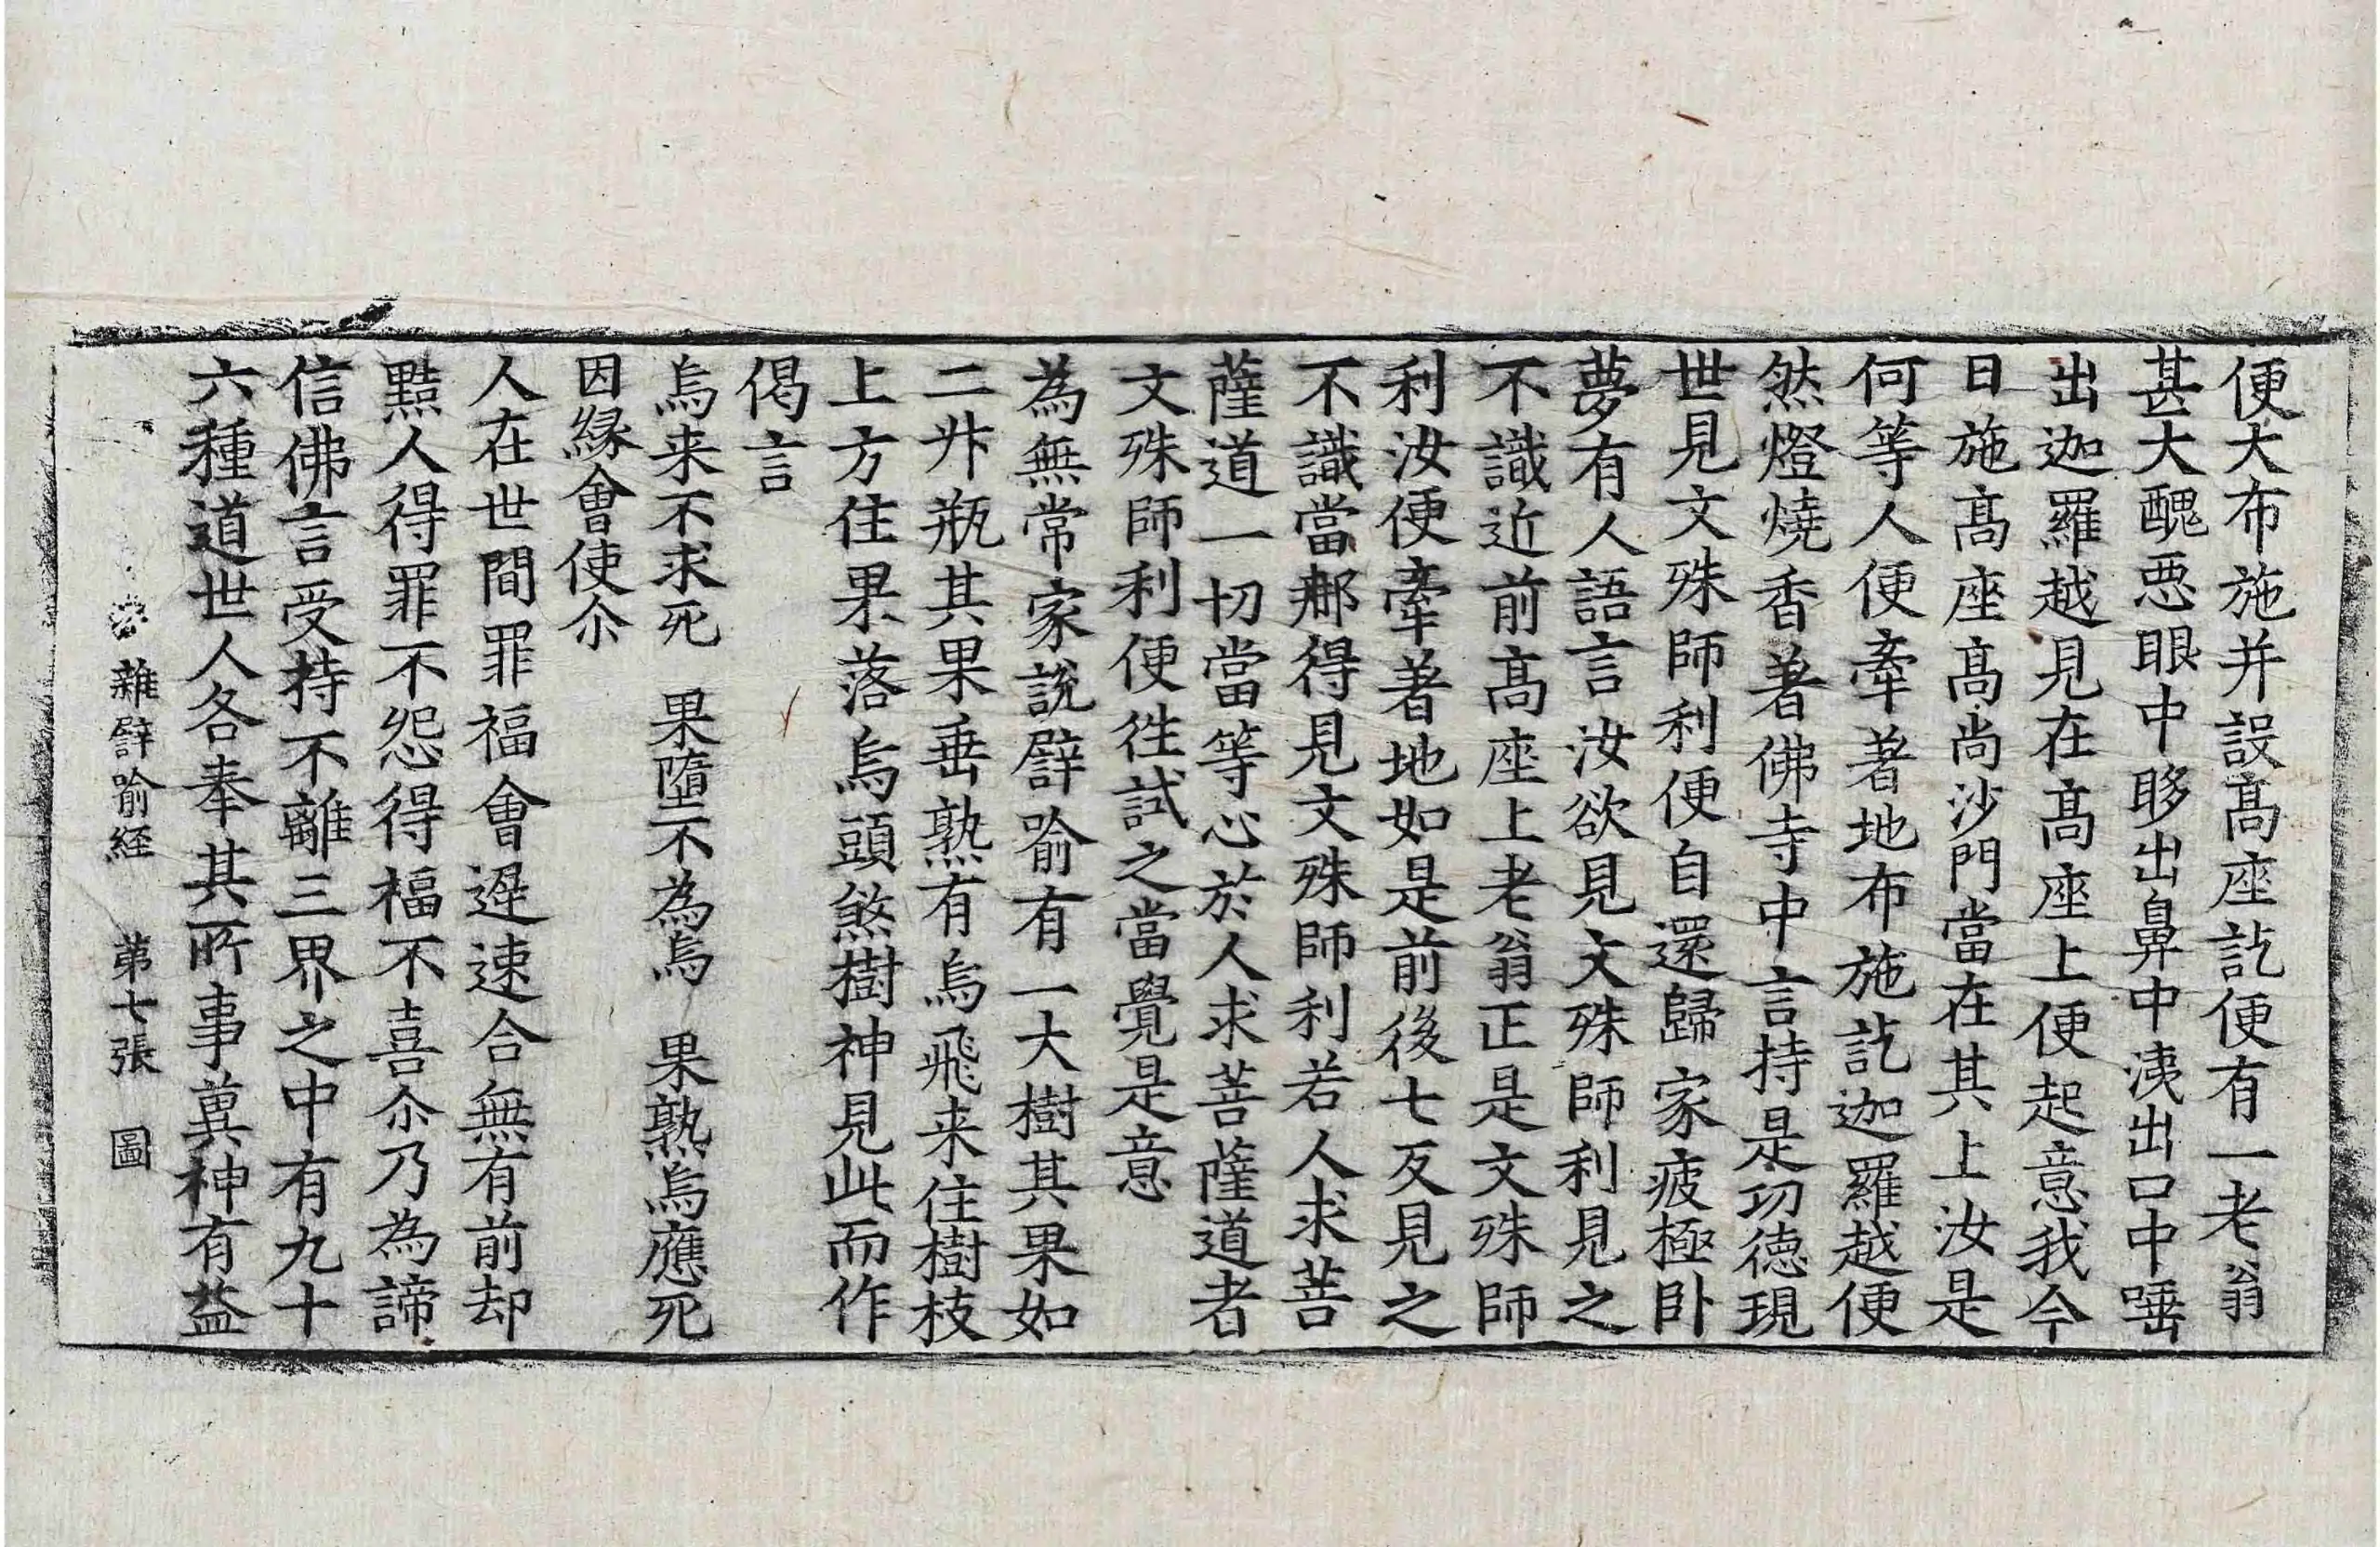 便大布施并設髙座訖便有一老翁
甚大醜惡眼中眵出鼻中洟出口中唾
出迦羅越見在髙座上便起意我今
日施髙座髙尚沙門當在其上汝是
何等人便牽著地布施訖迦羅越便
然燈燒香著佛寺中言持是功德現
世見文殊師利便自還歸家疲極卧
夢有人語言汝欲見文殊師利見之
不識近前髙座上老翁正是文殊師
利汝便牽著地如是前後七反見之
不識當那得見文殊師利若人求菩
薩道一切當等心於人求菩薩道者
文殊師利便往試之當覺是意
為無常家說譬喻有一大樹其果如
二升瓶其果垂熟有烏飛来住樹枝
上方住果落烏頭煞樹神見此而作
偈言
烏来不求死　果墮不為烏　果熟烏應死
因緣會使尒
人在世間罪福會遅速合無有前却
黠人得罪不怨得福不喜尒乃為諦
信佛言受持不離三界之中有九十
六種道世人各奉其所事冀神有益
雜譬喻経　苐七張　圖